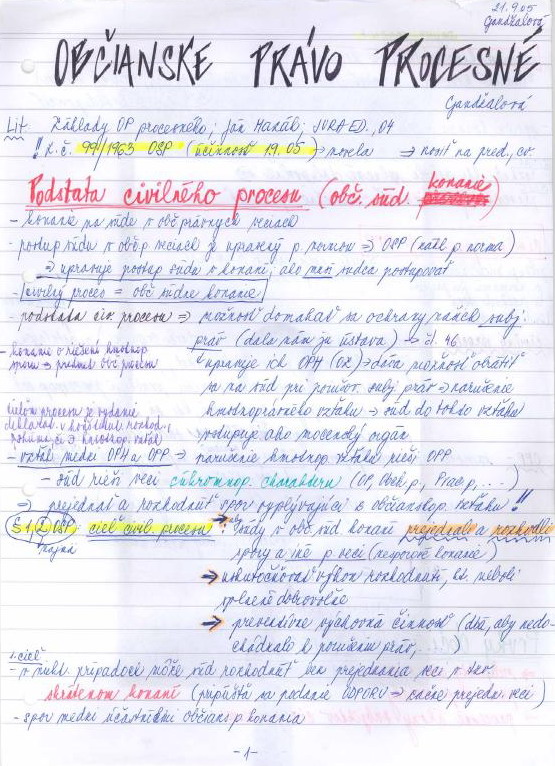 21.9.05
Gandžalová
OBČIANSKE PRÁVO PROCESNÉ
Gandžalová
Lit. Základy OP procesného; Ján Mazák; IURA ED., 04
!! Z.č. 99/1963 OSP (účinnosť 1.9.05) → novela ⇒ nosiť na pred., cv.
Podstata civilného procesu (obč. súd. konanie)
- konanie na súde v obč. právnych veciach
- postup súdu v obč. p. veciach je upravený p. normou ⇒ OSP (zákl. p. norma)
⇒ upravuje postup súdu v konaní; ako má sudca postupovať
- civilný proces = obč. súdne konanie
- podstata civ. procesu ⇒ možnosť domáhať sa ochrany našich subj.
práv (dala nám ju ústava) → čl. 46
konanie o riešení hmotnop.
sporu → predmet obč. procesu
upravuje ich OPH (OZ) → dáva možnosť obrátiť
sa na súd pri poruš. subj. práv ⇒ narušenie
hmotnoprávneho vzťahu → súd do tohto vzťahu
vstupuje ako mocenský orgán
cieľom procesu je vydanie
deklarat. v konštitut. rozhod.,
- vzťah medzi OPH a OPP ⇒ narušenie hmotnop. vzťahu rieši OPP
- súd rieši veci súkromnop. charakteru (OP, Obch. p., Prac. p., ...)
⇒ prejednať a rozhodnúť spor vyplývajúci z občianskop. vzťahu !!
§ 1, 2 OSP: cieľ civil. procesu: → súdy v obč. súd. konaní prejednali a rozhodli
najmä
spory a iné p. veci (nesporové konanie)
→ uskutočňovať výkon rozhodnutí, kt. neboli
splnené dobrovoľne
→ preventívne výchovná činnosť (dbá, aby nedo-
chádzalo k porušeniu práv, )
1. cieľ
- v niekt. prípadoch môže súd rozhodnúť bez prejednania veci v tzv.
skrátenom konaní (pripúšťa sa podanie ODPORU → začne prejedn. veci)
- spor medzi účastníkmi občians. p. konania
- 1 -